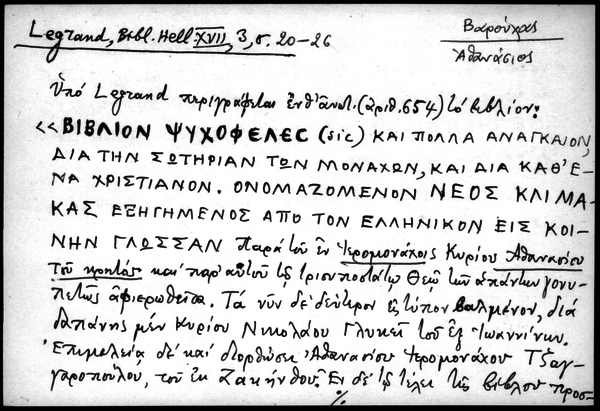 Legrand, Bibl. Hell XVII, 3, σ. 20-26
Βαρούχας
Ἀθανάσιος
Ὑπό Legrand περιγράφεται ἐνθ' ἀνωτ. (ἀριθ. 654) τό βιβλίον:
«ΒΙΒΛΙΟΝ ΨΥΧΟΦΕΛΕΣ (sic) ΚΑΙ ΠΟΛΛΑ ΑΝΑΓΚΑΙΟΝ,
ΔΙΑ ΤΗΝ ΣΩΤΗΡΙΑΝ ΤΩΝ ΜΟΝΑΧΩΝ, ΚΑΙ ΔΙΑ ΚΑΘ' Ε-
ΝΑ ΧΡΙΣΤΙΑΝΟΝ. ΟΝΟΜΑΖΟΜΕΝΟΝ ΝΕΟΣ ΚΛΙΜΑ-
ΚΑΣ ΕΞΗΓΗΜΕΝΟΣ ΑΠΟ ΤΟΝ ΕΛΛΗΝΙΚΟΝ ΕΙΣ ΚΟΙ-
ΝΗΝ ΓΛΩΣΣΑΝ παρά τοῦ ἐν Ἱερομονάχοις Κυρίου Ἀθανασίου
τοῦ κρητός καί παρ' αὐτοῦ τῷ τρισυποστάτῳ Θεῷ τῶν ἁπάντων γονυ-
πετῶς ἀφιερωθεῖσα. Τά νῦν δέ δεύτερον εἰς τύπον βαλμένον, διά
δαπάνης μέν Κυρίου Νικολάου Γλυκεῖ τοῦ ἐξ Ἰωαννίνων.
Ἐπιμελείᾳ δέ καί διορθώσει Ἀθανασίου Ἱερομονάχου Τζαγ-
γαροπούλου, τοῦ ἐκ Ζακήνθου. Ἐν δέ τῷ τέλει τῆς βίβλου προσ-
%